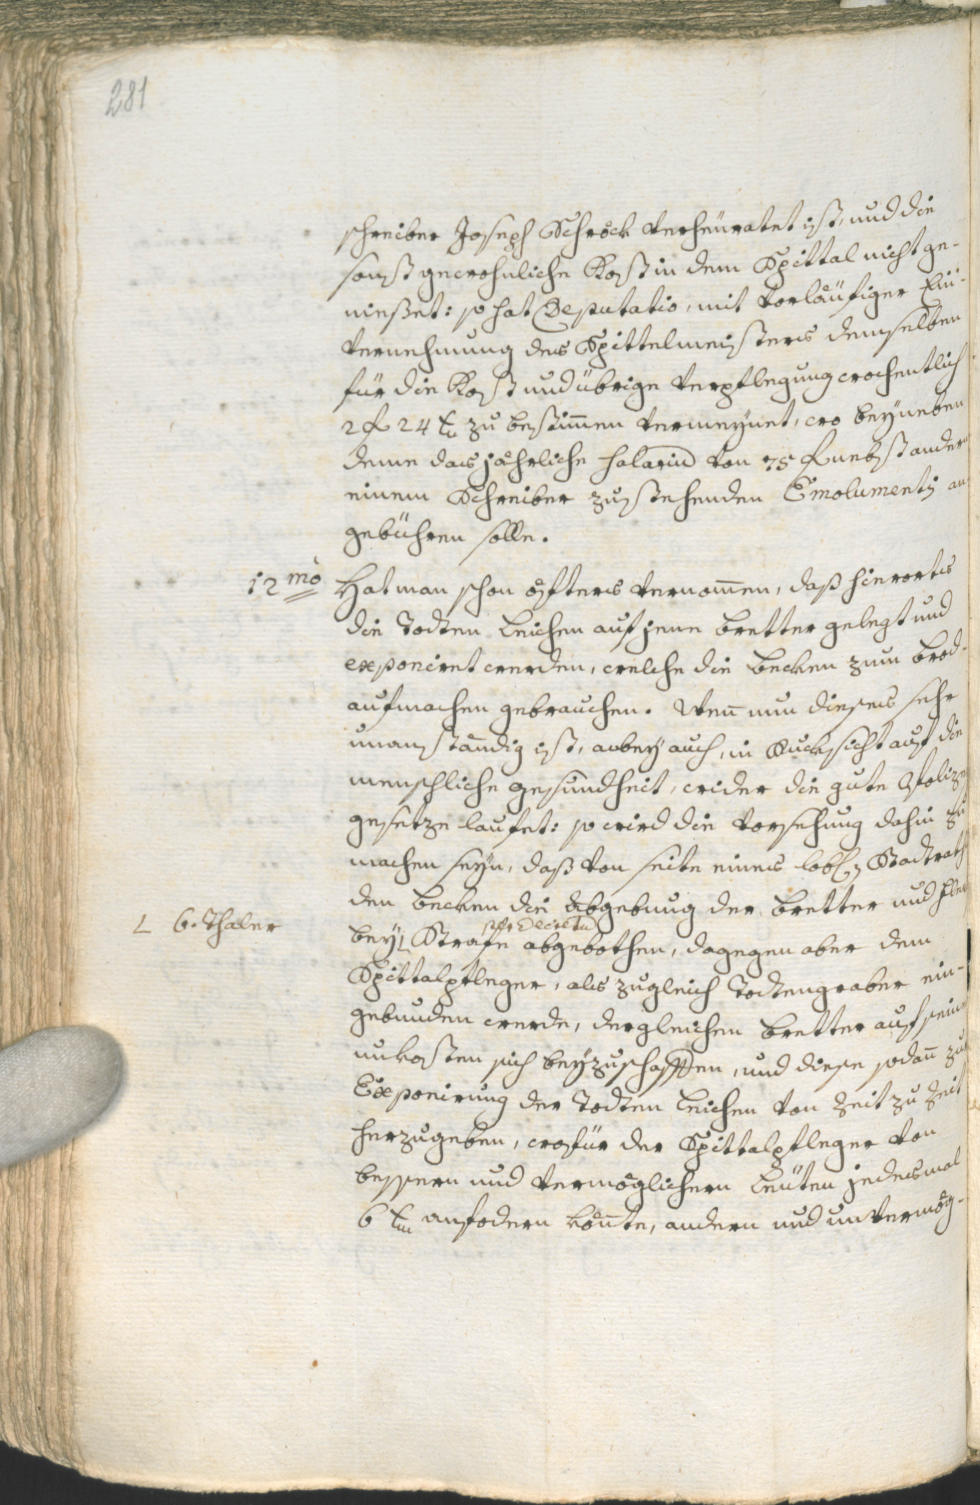 281
schreiber Joseph Schröck verheüratet ist, und die
sonst gewohnliche Kost in dem Spittal nicht ge-
nießet: so hat Deputatio, mit vorläufiger Ein-
vernehmung des Spittelmeisters demselben
für die Kost und übrige Verpflegung wochentlich
2 f 24 xr zu bestim̄en vermeynet, wo beyneben
deme das jährliche salarium von 75 f nebst andern
einem Schreiber zustehenden Emolumentis an-
gebühren solle.
12mo Hat man schon öfters vernom̄en, daß hierorts
die Todten Leichen auf jene Bretter gelegt und
exponiret werden, welche die Becken zum Brod-
aufmachen gebrauchen. Wen̄ nun dieses sehr
unanständig ist, anbey auch, in Rucksicht auf die
menschliche gesundheit, wider die gute Polizey
gesetze laufet: so wird die Vorsehung dahin zu
machen seyn, daß von seite eines löbl. Stadtrath
den Becken die Abgebung der Bretter
L 6. Thaler
per Decretum
bey L Strafe abgebothen, dagegen aber dem
Spittalpfleger, als zugleich Todtengraber ein-
gebunden werde, dergleichen Bretter auf seine
unkosten sich beyzuschaffen, und diese sodan̄ zu
Exponirung der Todten Leichen von Zeit zu Zeit
herzugeben, wofür der Spittalpfleger von
bessern und vermöglichern Leüten jedesmal
6 xr anfodern kön̄te, andern und unvermög-